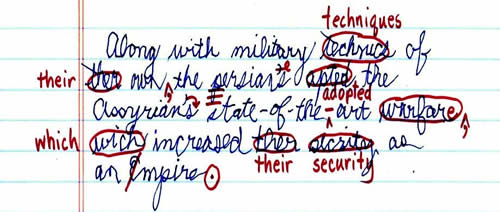 techniques
Along with military technics of
their ther own, the persian's apted the
adopted
Assyrian's state-of-the-art warfare,
which wich increased ther as
their security
an Empire.